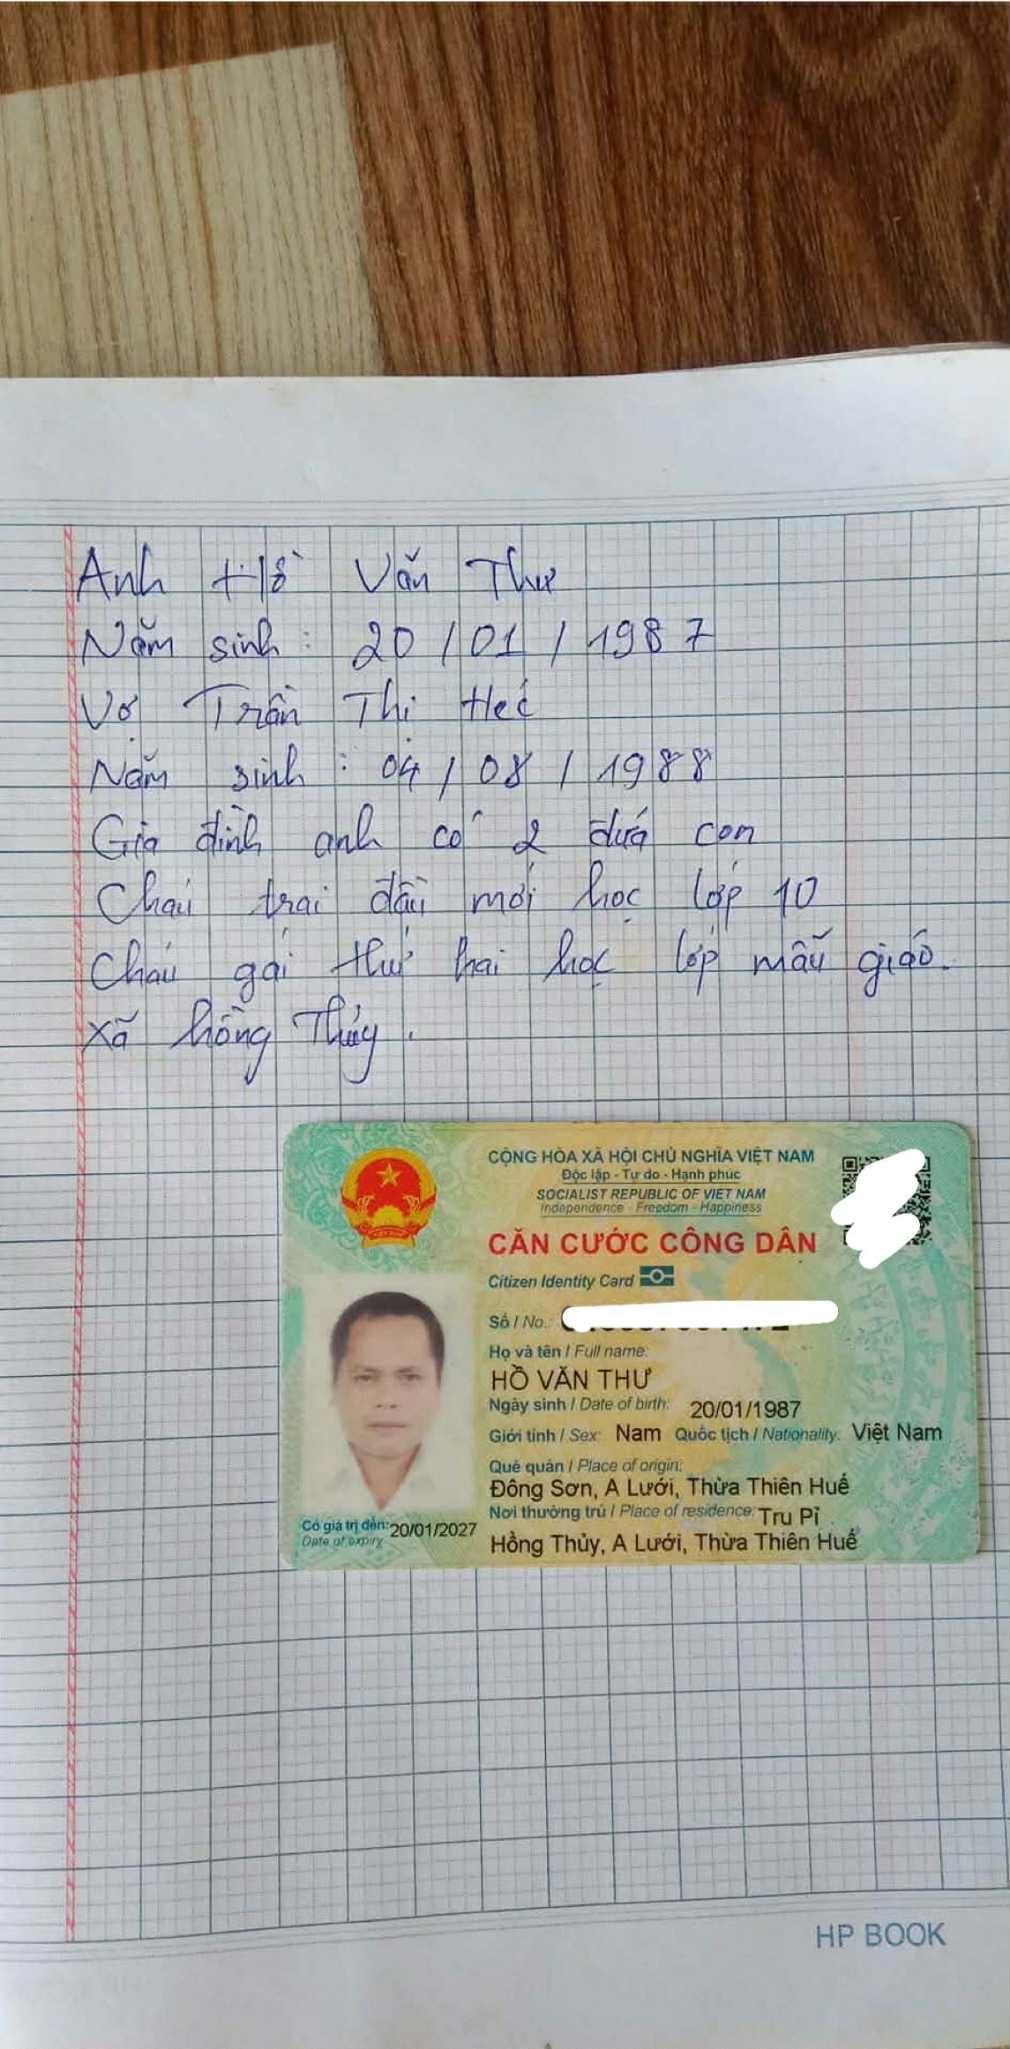 Anh Hồ Văn Thư
Năm sinh: 20/01/1987
Vợ Trần Thị Héc
Năm sinh: 04/08/1988
Gia đình anh có 2 đứa con
Cháu trai đầu mới học lớp 10
Cháu gái thứ hai học lớp mẫu giáo.
Xã hồng Thủy.
CỘNG HÒA XÃ HỘI CHỦ NGHĨA VIỆT NAM
Độc lập - Tự do - Hạnh phúc
SOCIALIST REPUBLIC OF VIET NAM
Independence - Freedom - Happiness
CĂN CƯỚC CÔNG DÂN
Citizen Identity Card
Số / No.:
Họ và tên / Full name:
HỒ VĂN THƯ
Ngày sinh / Date of birth: 20/01/1987
Giới tính / Sex: Nam Quốc tịch / Nationality: Việt Nam
Quê quán / Place of origin:
Đông Sơn, A Lưới, Thừa Thiên Huế
Nơi thường trú / Place of residence: Tru Pỉ
Hồng Thủy, A Lưới, Thừa Thiên Huế
Có giá trị đến: 20/01/2027
Date of expiry
HP BOOK